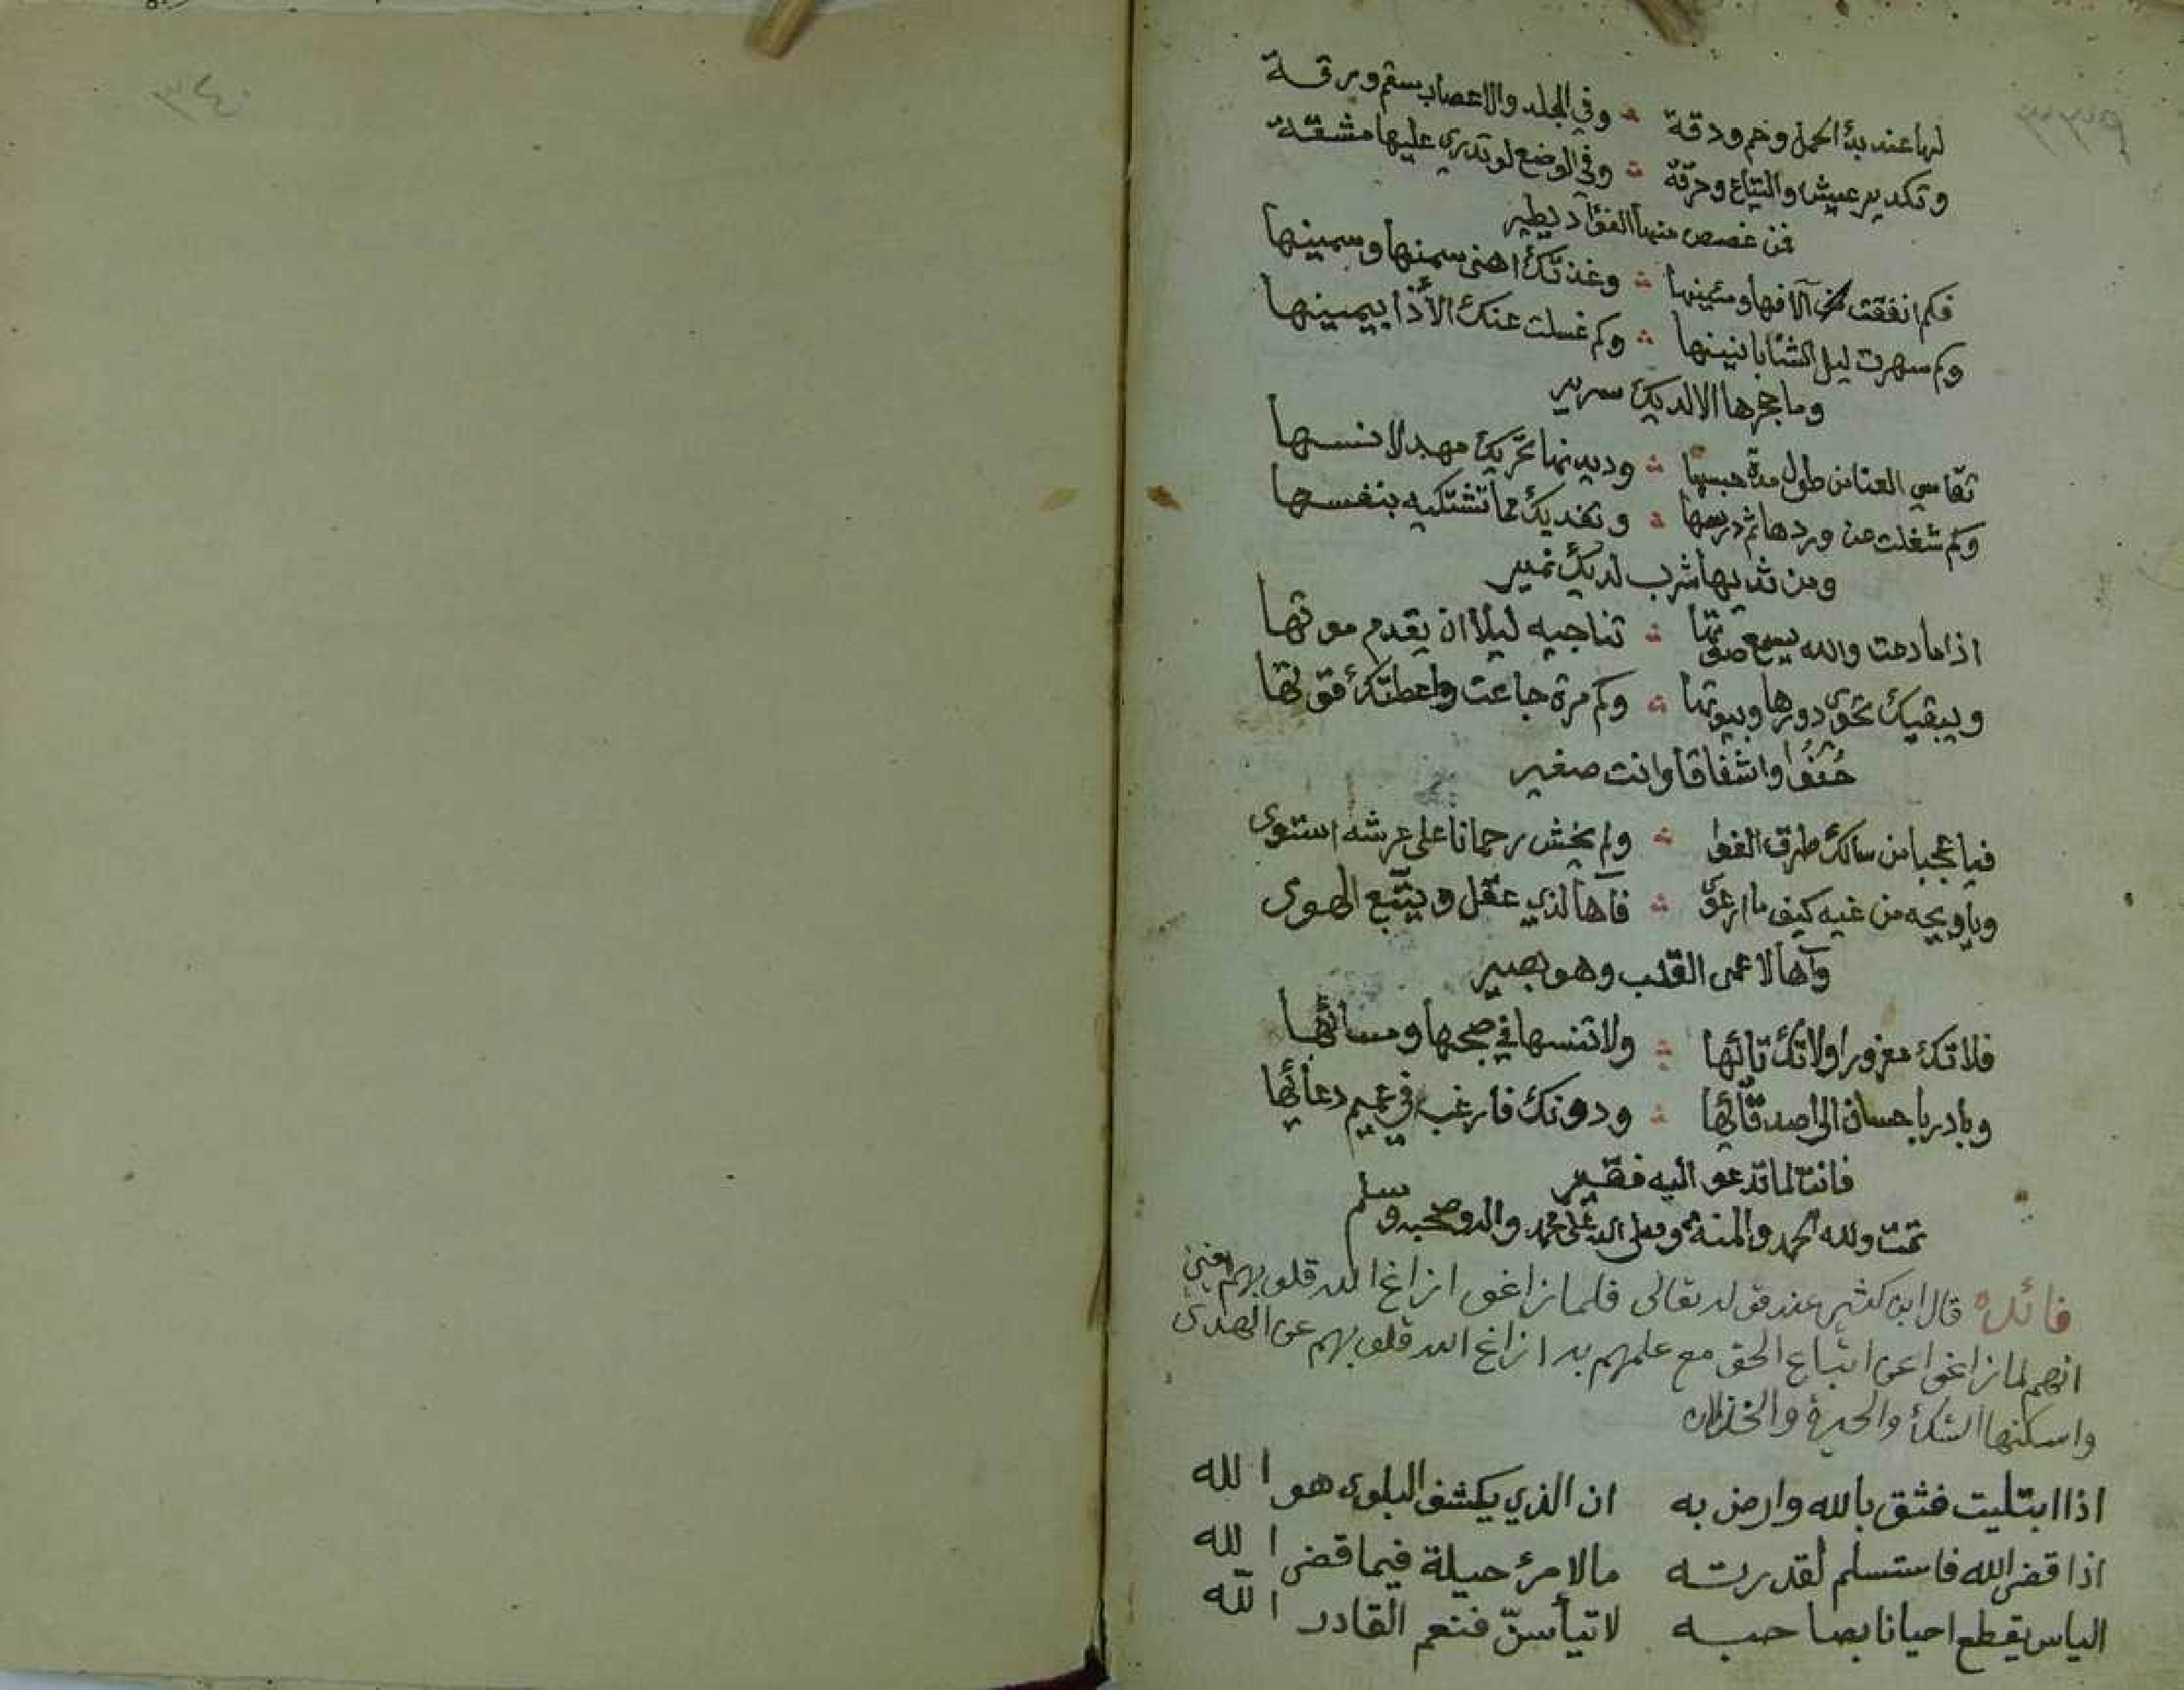 لها عند بدأ الحمل وخم ودقة ؞ وفي الجلد والاعصاب سقم ورقة
وتكدير عيش والتياع وحرقة ؞ وفي الوضع لو تدري عليها مشقة
فمن غصص منها الفؤاد يطير
فكم انفقت من آلافها ومئينها ؞ وغذتك اهنى سمنها وسمينها
وكم سهرت ليل الشتا بانينها ؞ وكم غسلت عنك الأذا بيمينها
وما حجرها الا لديك سرير
تقاسي العنا من طول مدة حبسها ؞ وديدنها تحريك مهد لانسها
وكم شغلت من وردها ثم درسها ؞ وتفديك مما تشتكيه بنفسها
ومن ثديها شرب لديك نمير
اذا ما دمت والله يسمع صوتها ؞ تناجيه ليلا ان يقدم موتها
ويبقيك تحوى دورها وبيوتها ؞ وكم مرة جاعت واعطتك قوتها
حنوا واشفاقا وانت صغير
فيا عجبا من سالك طرق الغوا ؞ ولم يخش رحمانا على عرشه استوى
ويا ويحه من غيه كيف ما ارعوى ؞ فآها لذي عقل ويتبع الهوى
وآها لاعمى القلب وهو بصير
فلا تك مغرورا ولا تك تائها ؞ ولا تنسها في صبحها ومسائها
وبادر باحسان الى اصدقائها ؞ ودونك فارغب في عميم دعائها
فانت لما تدعو اليه فقير
تمت ولله الحمد والمنة وصلى الله على محمد واله وصحبه وسلم
فائدة قال ابن كثير عند قوله تعالى فلما زاغوا ازاغ الله قلوبهم يعني
انهم لما زاغوا عن اتباع الحق مع علمهم به ازاغ الله قلوبهم عن الهدى
واسكنها الشك والحيرة والخذلان
اذا ابتليت فثق بالله وارض به ان الذي يكشف البلوى هو الله
اذا قضى الله فاستسلم لقدرته ما لامرئ حيلة فيما قضى الله
الياس يقطع احيانا بصاحبه لا تيأسنّ فنعم القادر الله